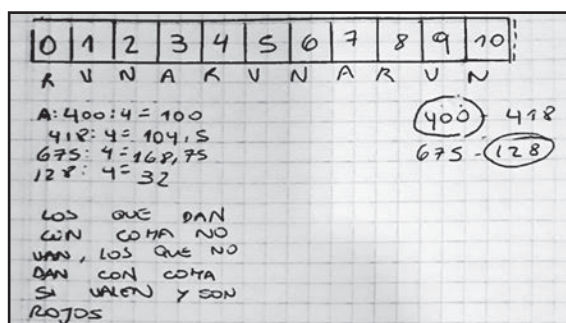 0 1 2 3 4 5 6 7 8 9 10
R V N A R V N A R V N
A: 400 : 4 = 100
418 : 4 = 104,5
675 : 4 = 168,75
128 : 4 = 32
400 - 418
675 - 128
LOS QUE DAN
CON COMA NO
VAN, LOS QUE NO
DAN CON COMA
SI VALEN Y SON
ROJOS